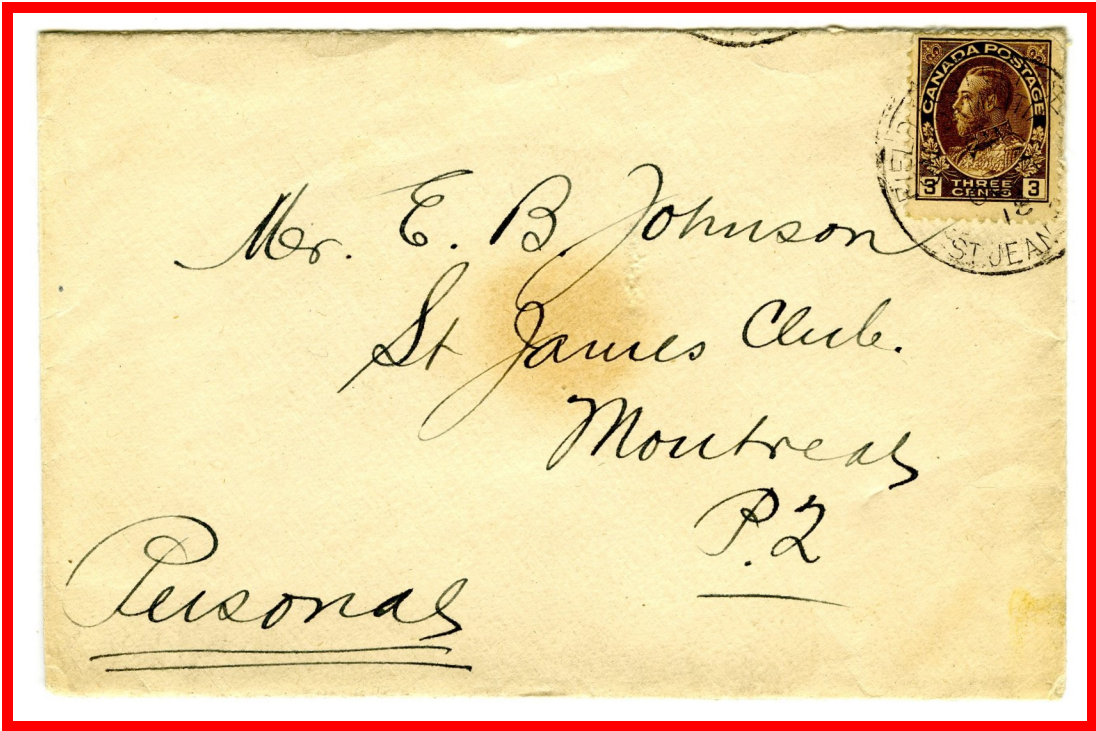 CANADA POSTAGE
3 THREE CENTS 3
FIELD
18
ST. JEAN
Mr. E. B. Johnson
St James Club.
Montreal
P.Q
Personal